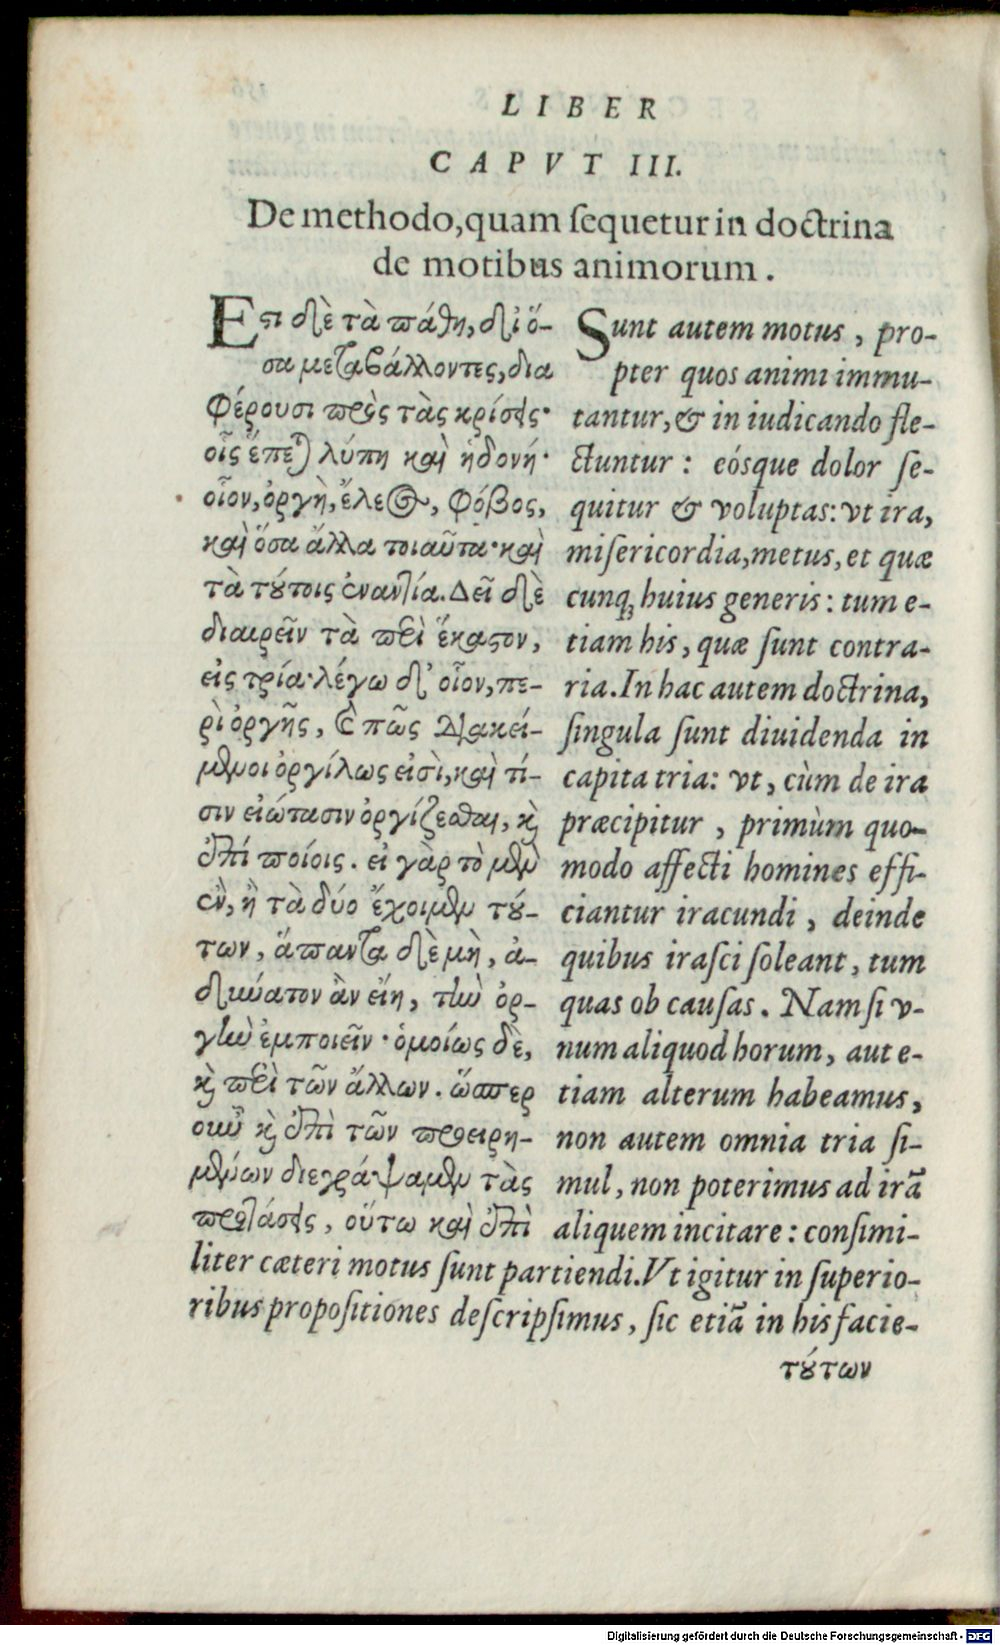 LIBER
CAPVT III.
De methodo, quam ſequetur in doctrina
de motibus animorum.
Εϛι δὲ τὰ πάθη, δι᾽ ὅ-
σα μεταβάλλοντες, δια
φέρουσι πρὸς τὰς κρίσεις·
οἷς ἕπεται λύπη καὶ ἡδονή·
οἷον, ὀργὴ, ἔλεος, φόβος,
καὶ ὅσα ἄλλα τοιαῦτα· καὶ
τὰ τούτοις ἐναντία. Δεῖ δὲ
διαιρεῖν τὰ περὶ ἕκαϛον,
εἰς τρία· λέγω δ᾽ οἷον, πε-
ρὶ ὀργῆς, ὅ πῶς διακεί-
μενοι ὀργίλως εἰσὶ, καὶ τί-
σιν εἰώτασιν ὀργίζεσθαι, καὶ
ἐπὶ ποίοις. εἰ γὰρ τὸ μὲν
ἓν, ἢ τὰ δύο ἔχοιμεν τού-
των, ἅπαντα δὲ μὴ, ἀ-
δύνατον ἂν εἴη, τὴν ὀρ-
γὴν ἐμποιεῖν· ὁμοίως δὲ,
καὶ περὶ τῶν ἄλλων. ὥσπερ
οὖν καὶ ἐπὶ τῶν προειρη-
μένων διεγράψαμεν τὰς
προτάσεις, οὕτω καὶ ἐπὶ
Sunt autem motus, pro-
pter quos animi immu-
tantur, & in iudicando fle-
ctuntur: eósque dolor ſe-
quitur & voluptas: vt ira,
miſericordia, metus, et quæ
cunq; huius generis: tum e-
tiam his, quæ ſunt contra-
ria. In hac autem doctrina,
ſingula ſunt diuidenda in
capita tria: vt, cùm de ira
præcipitur, primùm quo-
modo affecti homines effi-
ciantur iracundi, deinde
quibus iraſci ſoleant, tum
quas ob cauſas. Nam ſi v-
num aliquod horum, aut e-
tiam alterum habeamus,
non autem omnia tria ſi-
mul, non poterimus ad irã
aliquem incitare: conſimi-
liter cæteri motus ſunt partiendi. Vt igitur in ſuperio-
ribus propoſitiones deſcripſimus, ſic etiã in his facie-
τούτων
Digitalisierung gefördert durch die Deutsche Forschungsgemeinschaft - DFG